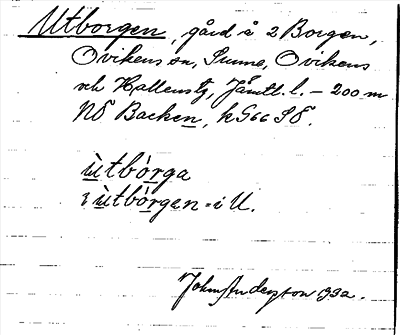 Utborgen, gård å 2 Borgen,
Ovikens sn, Sunne, Ovikens
och Hallens tg, Jämtl. l. – 200 m
NÖ Backen, k G66 SÖ.
ùtbórga
i ùtbórgen = i U.
John Anderson 1932.